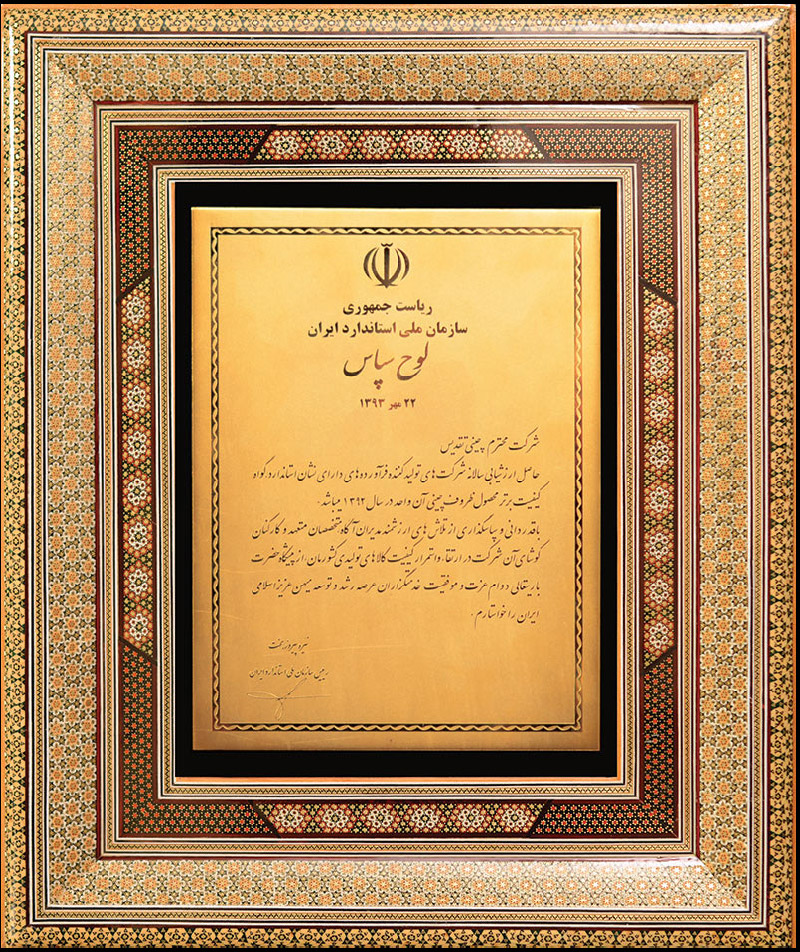 ریاست جمهوری
سازمان ملی استاندارد ایران
لوح سپاس
۲۲ مهر ۱۳۹۳
شرکت محترم چینی تقدیس
حاصل ارزشیابی سالانه شرکت‌های تولید کننده فرآورده‌های دارای نشان استاندارد، گواه
کیفیت برتر محصول ظروف چینی آن واحد در سال ۱۳۹۲ میباشد.
باقدردانی و سپاسگذاری از تلاش های ارزشمند مدیران آگاه متخصصان متعهد و کارکنان
کوشای آن شرکت در ارتقاء و استمرار کیفیت کالاهای تولیدی کشورمان، از پیشگاه حضرت
باریتعالی دوام عزت و موفقیت خدمتگزاران عرصه رشد و توسعه میهن عزیز اسلامی
ایران را خواستارم.
نیره پیروزبخت
رییس سازمان ملی استاندارد ایران